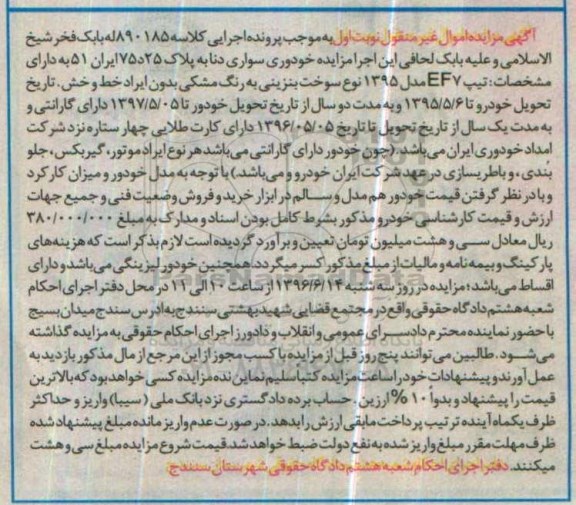 آگهی مزایده اموال غیر منقول نوبت اول به موجب پرونده اجرایی کلاسه ۸۹۰۱۸۵ له بابک فخر شیخ
الاسلامی و علیه بابک لحافی این اجرا مزایده خودوری سواری دنا به پلاک ۲۵د۷۵ ایران ۵۱ به دارای
مشخصات : تیپ EF۷ مدل ۱۳۹۵ نوع سوخت بنزینی به رنگ مشکی بدون ایراد خط و خش . تاریخ
تحویل خودرو تا ۱۳۹۵/۵/۶ و به مدت دو سال از تاریخ تحویل خودور تا ۱۳۹۷/۵/۰۵ دارای گارانتی و
به مدت یک سال از تاریخ تحویل تا تاریخ ۱۳۹۶/۰۵/۰۵ دارای کارت طلایی چهار ستاره نزد شرکت
امداد خودوری ایران می باشد . (چون خودور دارای گارانتی می باشد هر نوع ایراد موتور ، گیربکس ، جلو
بندی ، و باطری سازی در عهد شرکت ایران خودرو و می باشد ) با توجه به مدل خودور و میزان کارکرد
و با در نظر گرفتن قیمت خودور هم مدل و سالم در ابزار خرید و فروش وضعیت فنی و جمیع جهات
ارزش و قیمت کارشناسی خودرو مذکور بشرط کامل بودن اسناد و مدارک به مبلغ ۳۸۰/۰۰۰/۰۰۰
ریال معادل سی و هشت میلیون تومان تعیین و برآورد گردیده است لازم بذکر است که هزینه های
پارکینگ و بیمه نامه و مالیات از مبلغ مذکور کسر میگردد. همچنین خودور لیزینگی می باشد و دارای
اقساط می باشد ؛ مزایده در روز سه شنبه ۱۳۹۶/۶/۱۴ از ساعت ۱۰ الی ۱۱ در محل دفتر اجرای احکام
شعبه هشتم دادگاه حقوقی واقع در مجتمع قضایی شهید بهشتی سنندج به ادرس سنندج میدان بسیج
با حضور نماینده محترم دادسرای عمومی و انقلاب و دادورز اجرای احکام حقوقی به مزایده گذاشته
می شود . طالبین می توانند پنج روز قبل از مزایده با کسب مجوز از این مرجع از مال مذکور بازدید به
عمل آورند و پیشنهادات خود را ساعت مزایده کتبا تسلیم نمایند مزایده کسی خواهد بود که بالاترین
قیمت را پیشنهاد و بدوأ ۱۰ % ارزین . حساب برده دادگستری نزد بانک ملی ( سیبا) واریز و حداکثر
ظرف یکماه آینده ترتیب پرداخت مابقی ارزش را بدهد . در صورت عدم واریز مانده مبلغ پیشنهاد شده
ظرف مهلت مقرر مبلغ واریز شده به نفع دولت ضبط خواهد شد. قیمت شروع مزایده مبلغ سی و هشت
میکنند. دفتر اجرای احکام شعبه هشتم دادگاه حقوقی شهرستان سنندج